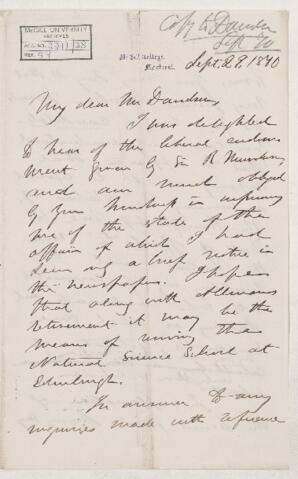 McGILL UNIVERSITY
ARCHIVES
ACC. NO.
REF.
McGill College,
Montreal.
Sept. 28, 1870
My dear Mr
I was delighted
to hear of the liberal endow
ment given by Sir R Murchison
and am much obliged
by your kindness in informing
me of the state of the
affair of which I had
seen only a brief notice in
the newspapers. I hope
that along with Allmans
retirement it may be the
means of reviving the
Natural Science School at
Edinburgh.
In answer to any
inquiries made with reference